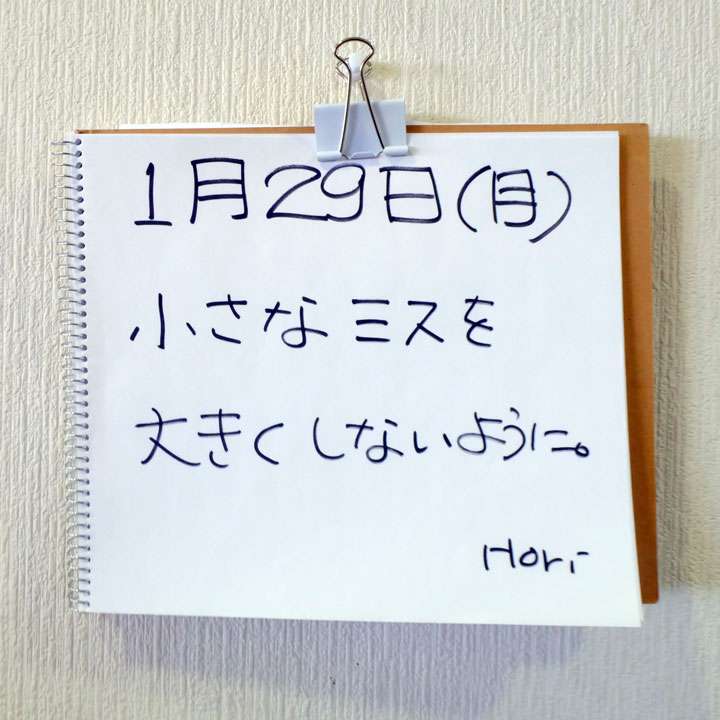 1月29日(月)
小さなミスを
大きくしないように。
Hori